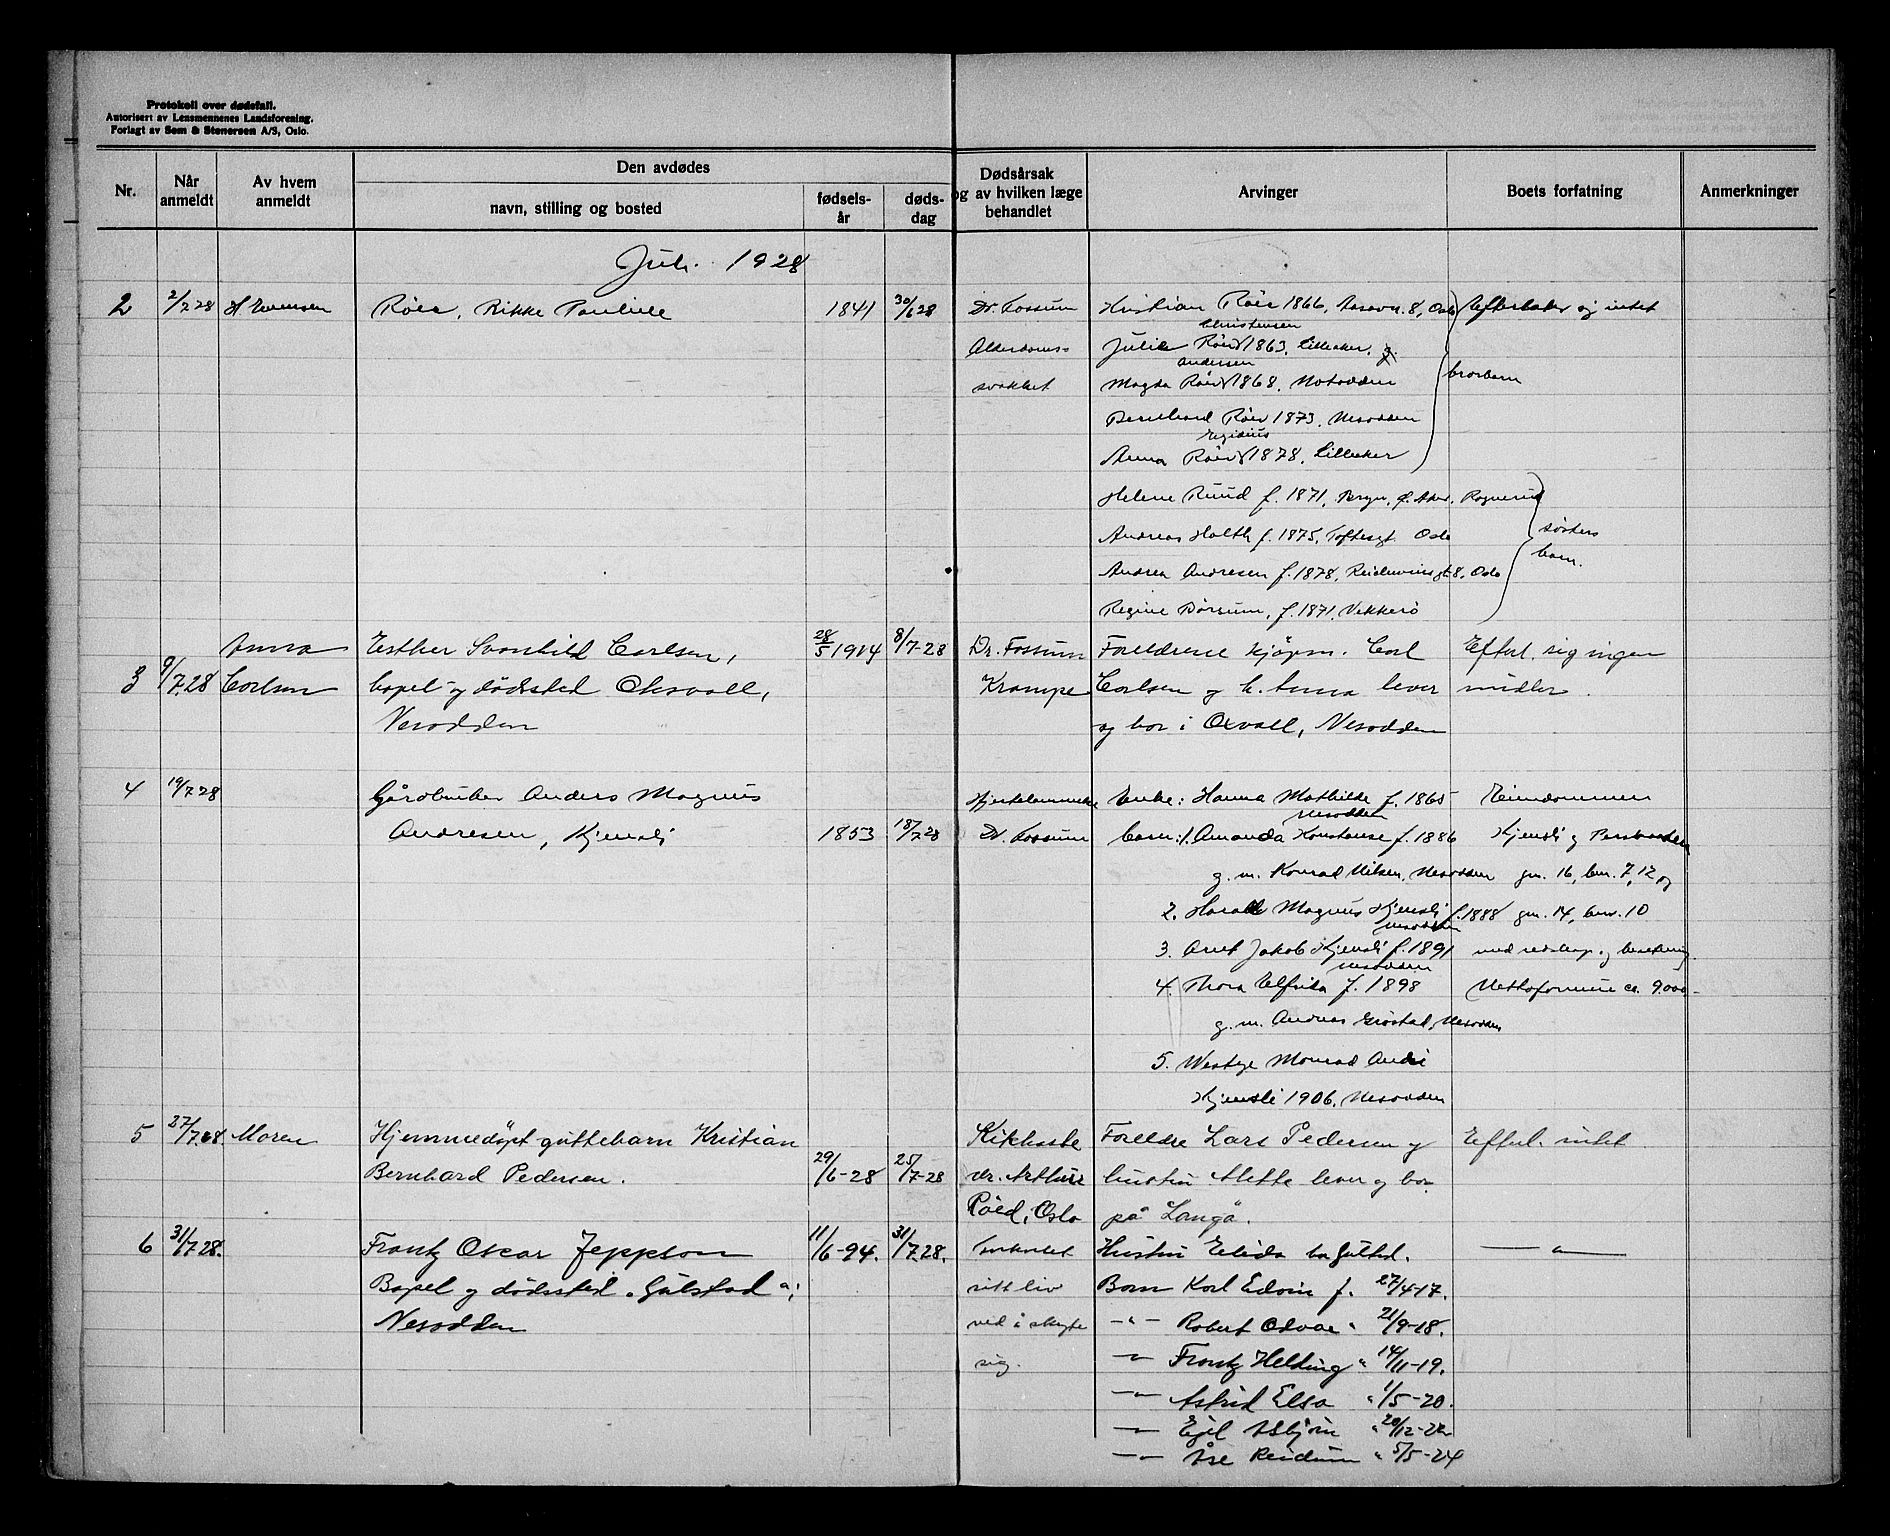 Protokoll over dødsfall.
Autorisert av Lensmennenes Landsforening.
Forlagt av Sem & Stenersen A/S, Oslo.
Nr.
Når anmeldt
Av hvem anmeldt
Den avdødes
navn, stilling og bosted
fødsels-år
døds-dag
Dødsårsak og av hvilken læge behandlet
Arvinger
Boets forfatning
Anmerkninger
Juli. 1928
2 2/7 28 Røer, Rikke Pauline 1841 30/6 28
Dr. Fossum
Alderdoms-
svakhet
Kristian Röer 1866, 8, Oslo
Christensen
Julie Röer 1863, Lilleaker. g.
Andersen
Magda Röer 1868, Notodden
Bernhard Röer 1873, Nesodden
Anna Röer 1878, Lilleaker
brorbarn
Efterlater sig intet
Helene Ruud f. 1871,
Andreas Holth f. 1875, Toftesgt. Oslo
Andrea Andresen f. 1878, 8, Oslo
Regine Börsum, f. 1871, Vekkerö
søsters
barn.
3 9/7 28 Anna
Carlsen
Esther Svanhild Carlsen,
bopel og dødssted Oksvall,
Nesodden
28/5 1914 8/7-28
Dr. Fossum
Krampe
Foreldrene kjøpm. Carl
Carlsen og h. Anna lever
og bor i Oxvall, Nesodden
Efterl. sig ingen
midler.
4 19/7 28 Gårdbruker Anders Magnus
Andresen, Kjensli 1853 18/7 28
Hjertelammelse
Dr. Fossum
Enke: Hanna Mathilde f. 1865
Nesodden
barn: 1. Amanda Konstanse f. 1886
g. m. Konrad Nilsen, Nesodden
2. Harald Magnus Kjensli f. 1888
Nesodden
3. Arnt Jakob Kjensli f. 1891
Nesodden
4. Thora Elfrida f. 1898
g. m. Andreas Grøstad, Nesodden
5. Monrad André
Kjensli 1906, Nesodden
Eiendommen
Kjensli og
gn. 16, bnr. 7, 12 og
gn. 14, bnr. 10
med redskap og besetning.
Nettoformue ca. 9.000-
5 27/7 28 Moren
Hjemmedøpt guttebarn Kristian
Bernhard Pedersen. 29/6-28 25/7-28
Kikhoste
dr. Arthur
Röed, Oslo
Foreldre Lars Pedersen og
hustru Mette lever og bor
på Langø.
Efterl. intet
6 31/7 28. Frantz Oscar Jeppson 11/6-94. 31/7 28.
Bopel og dødssted "Gulstad";
Nesodden
forkortet
sitt liv
ved å skyte
sig.
Hustru Elida bor Gulstad.
Barn Karl Edvin f. 27/4-17.
-"- Robert Odvar " 21/9-18.
-"- Frantz Helding " 14/11-19.
-"- Astrid Elsa " 1/5-20.
-"- Egil Asbjörn " 20/12-22
-"- Åse Reidunn " 5/5-24
-"-